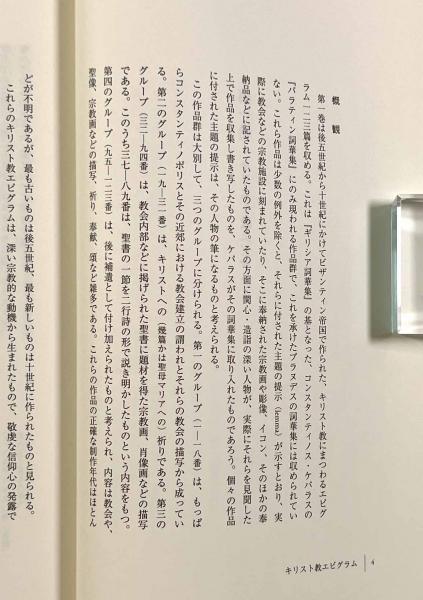 概観
第一巻は後五世紀から十世紀にかけてビザンティン帝国で作られた、キリスト教にまつわるエピグ
ラム一二三篇を収める。これは『ギリシア詞華集』の基となった、コンスタンティノス・ケパラスの
『パラティン詞華集』にのみ現われる作品群で、これを承けたプラヌデスの詞華集には収められてい
ない。これら作品は少数の例外を除くと、それらに付された主題の提示(lemma)が示すとおり、実
際に教会などの宗教施設に刻まれていたり、そこに奉納された宗教画や彫像、イコン、そのほかの奉
納品などに記されていたものである。その方面に関心・造詣の深い人物が、実際にそれらを見聞した
上で作品を収集し書き写したものを、ケパラスがその詞華集に取り入れたものであろう。個々の作品
に付された主題の提示は、その人物の筆になるものと考えられる。
この作品群は大別して、三つのグループに分けられる。第一のグループ(一—一八番)は、もっぱ
らコンスタンティノポリスとその近郊における教会建立の謂われとそれらの教会の描写から成ってい
る。第二のグループ(一九—三一番)は、キリストへの(幾篇かは聖母マリアへの)祈りである。第三の
グループ(三二—九四番)は、教会内部などに掲げられた聖書に題材を得た宗教画、肖像画などの描写
である。このうち三七—八九番は、聖書の一節を二行詩の形で説き明かしたものという内容をもつ。
第四のグループ(九五—一二三番)は、後に補遺として付け加えられたものと考えられ、内容は教会や、
聖像、宗教画などの描写、祈り、奉献、頌など雑多である。これらの作品の正確な制作年代はほとん
どが不明であるが、最も古いものは後五世紀、最も新しいものは十世紀に作られたものと見られる。
これらのキリスト教エピグラムは、深い宗教的な動機から生まれたもので、敬虔な信仰心の発露で
キリスト教エピグラム
4